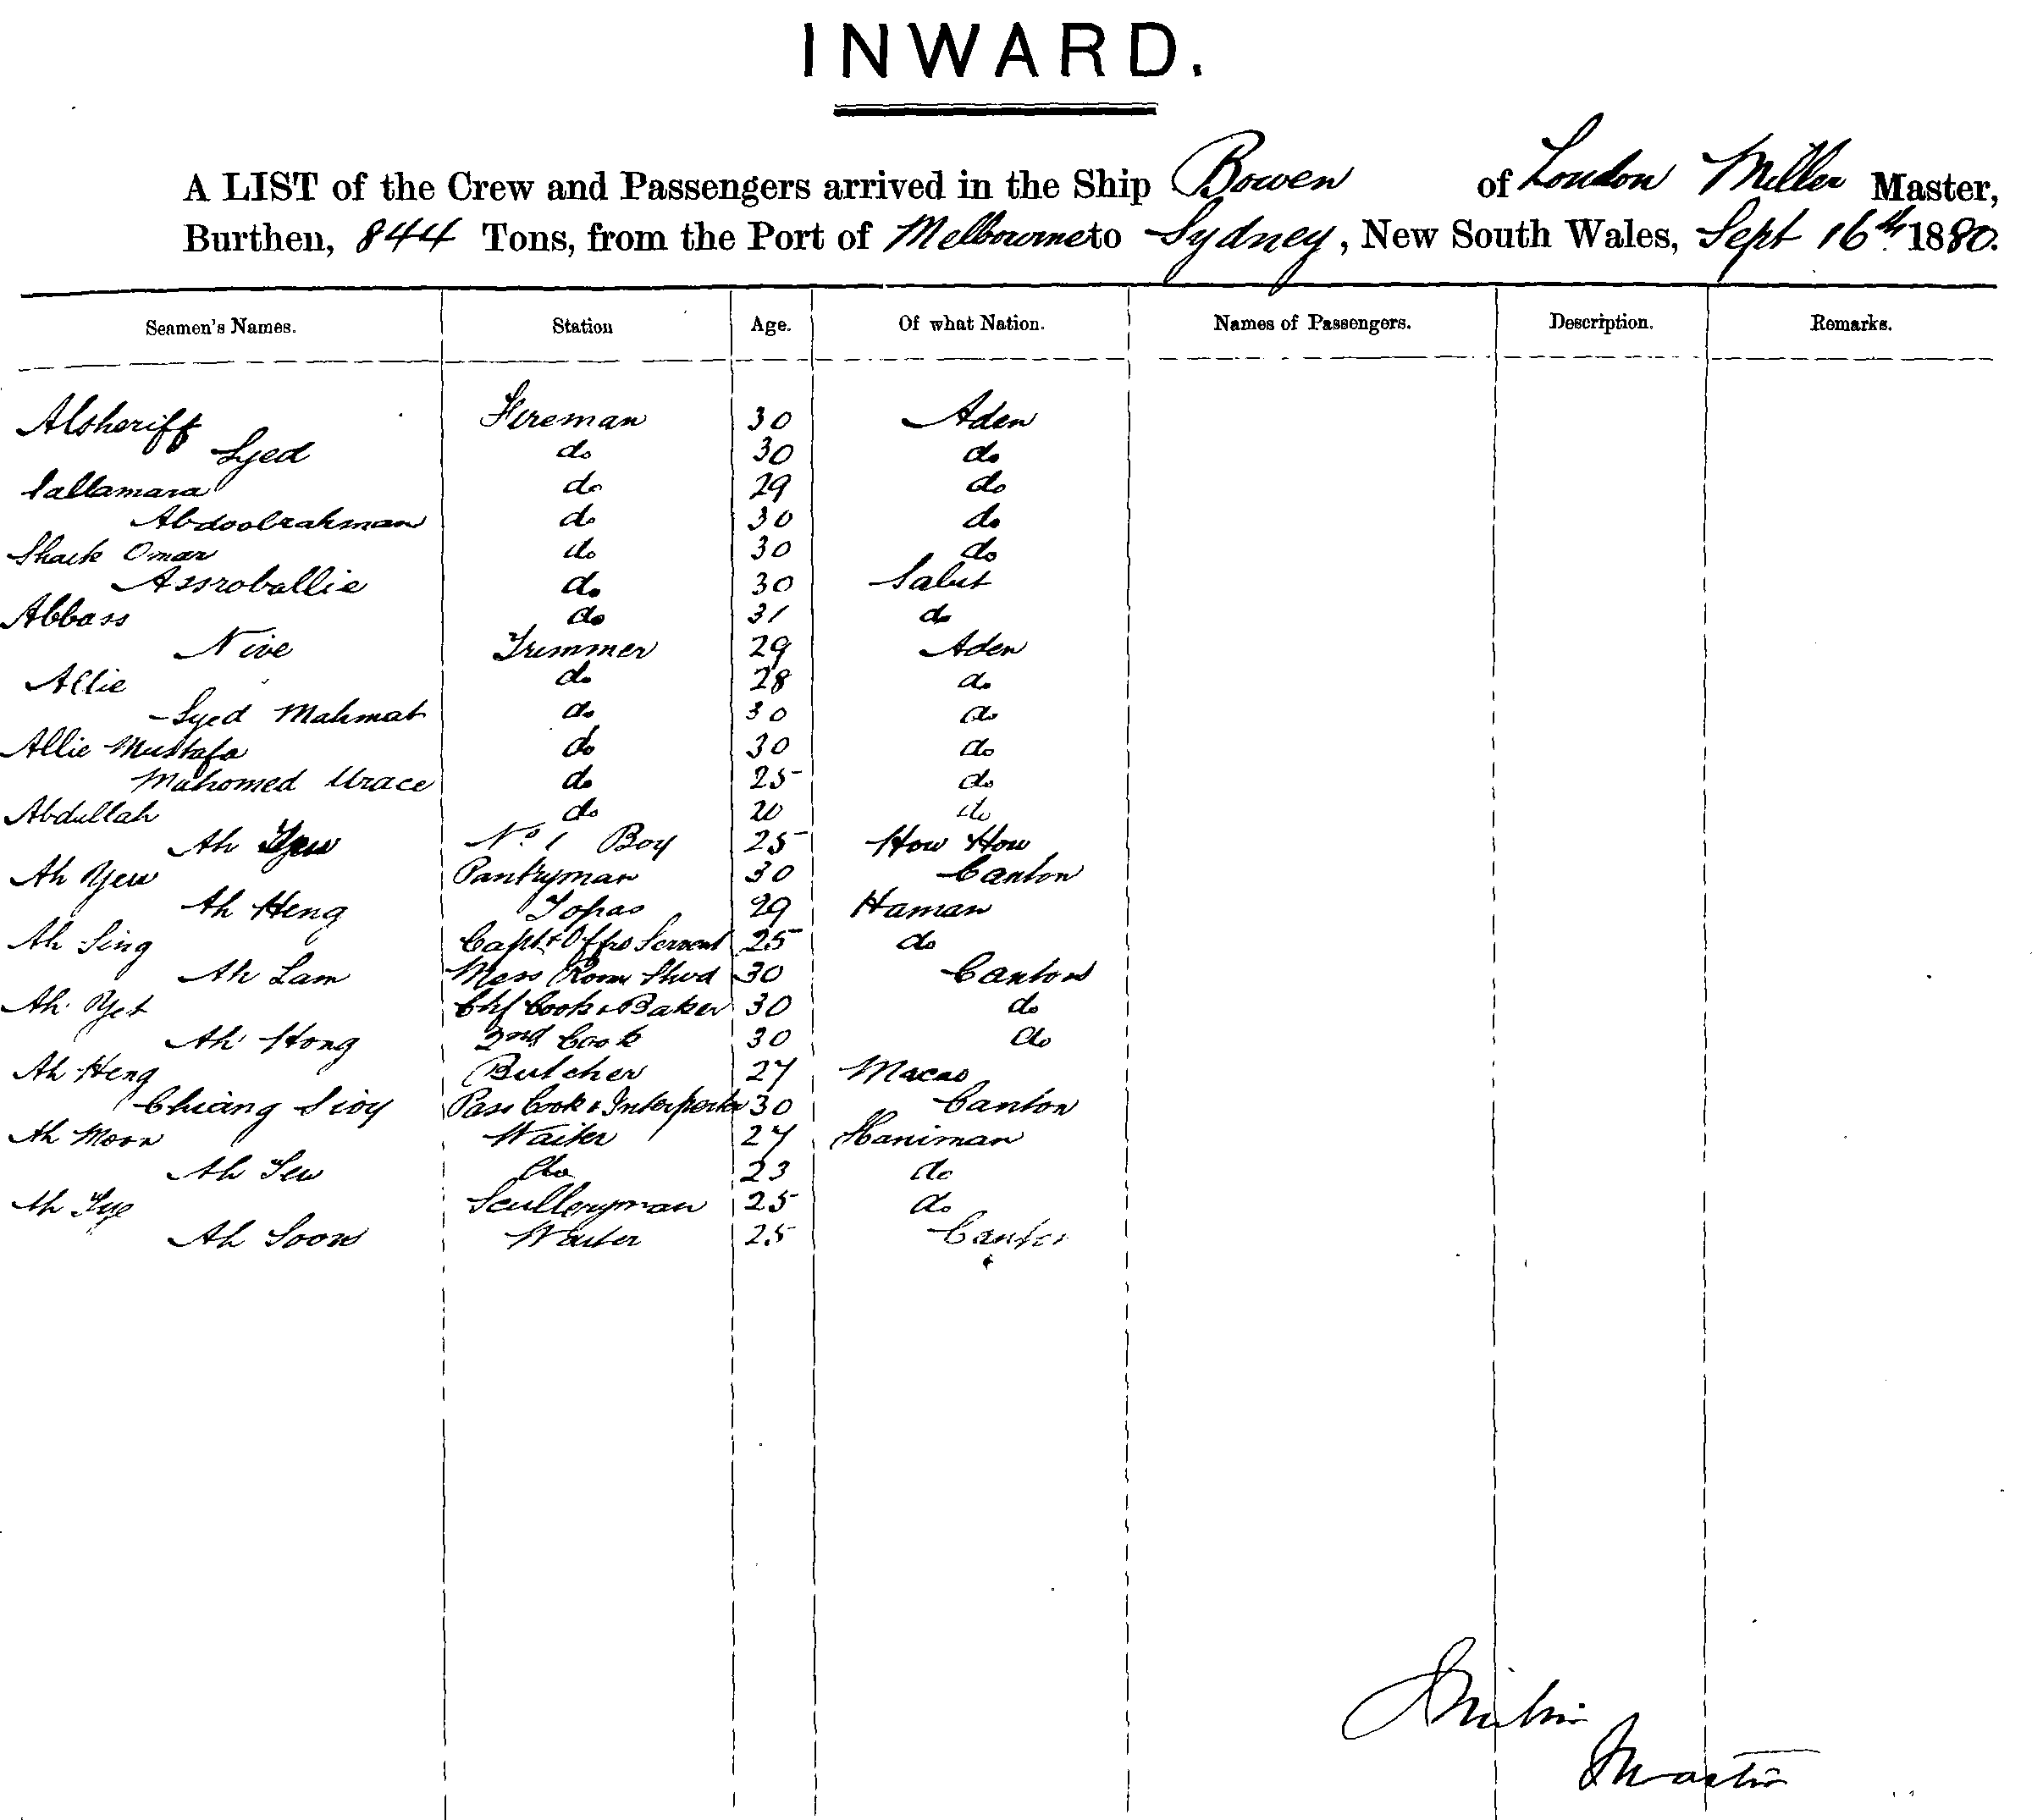 INWARD.
A LIST of the Crew and Passengers arrived in the Ship Bowen of London Miller Master,
Burthen, 844 Tons, from the Port of Melbourne to Sydney, New South Wales, Sept 16th 1880.
Seamen's Names. Station Age. Of what Nation. Names of Passengers. Description. Remarks.
Alsheriff Fireman 30 Aden
Syed do 30 do
Sallamara do 29 do
Abdoolrahman do 30 do
Shaik Omar do 30 do
Assroballie do 30 Salut
Abbass do 31 do
Nive Trimmer 29 Aden
Allie do 28 do
Syed Mahmat do 30 do
Allie Mustafa do 30 do
Mahomed Urace do 25 do
Abdullah do 20 do
Ah No 1 Boy 25 How How
Ah Yew Pantryman 30 Canton
Ah Heng Topas 29 Haman
Ah Sing Capt & Offrs Servant 25 do
Ah Lam Mess Room Stwd 30 Canton
Ah Yet Chf Cook & Baker 30 do
Ah Hong 2nd Cook 30 do
Ah Heng Butcher 27 Macao
Chiang Sioy Pass Cook & Interperter 30 Canton
Ah Moon Waiter 27 Haniman
Ah Sew do 23 do
Ah Sculleryman 25 do
Ah Soon Waiter 25 Canton
Master